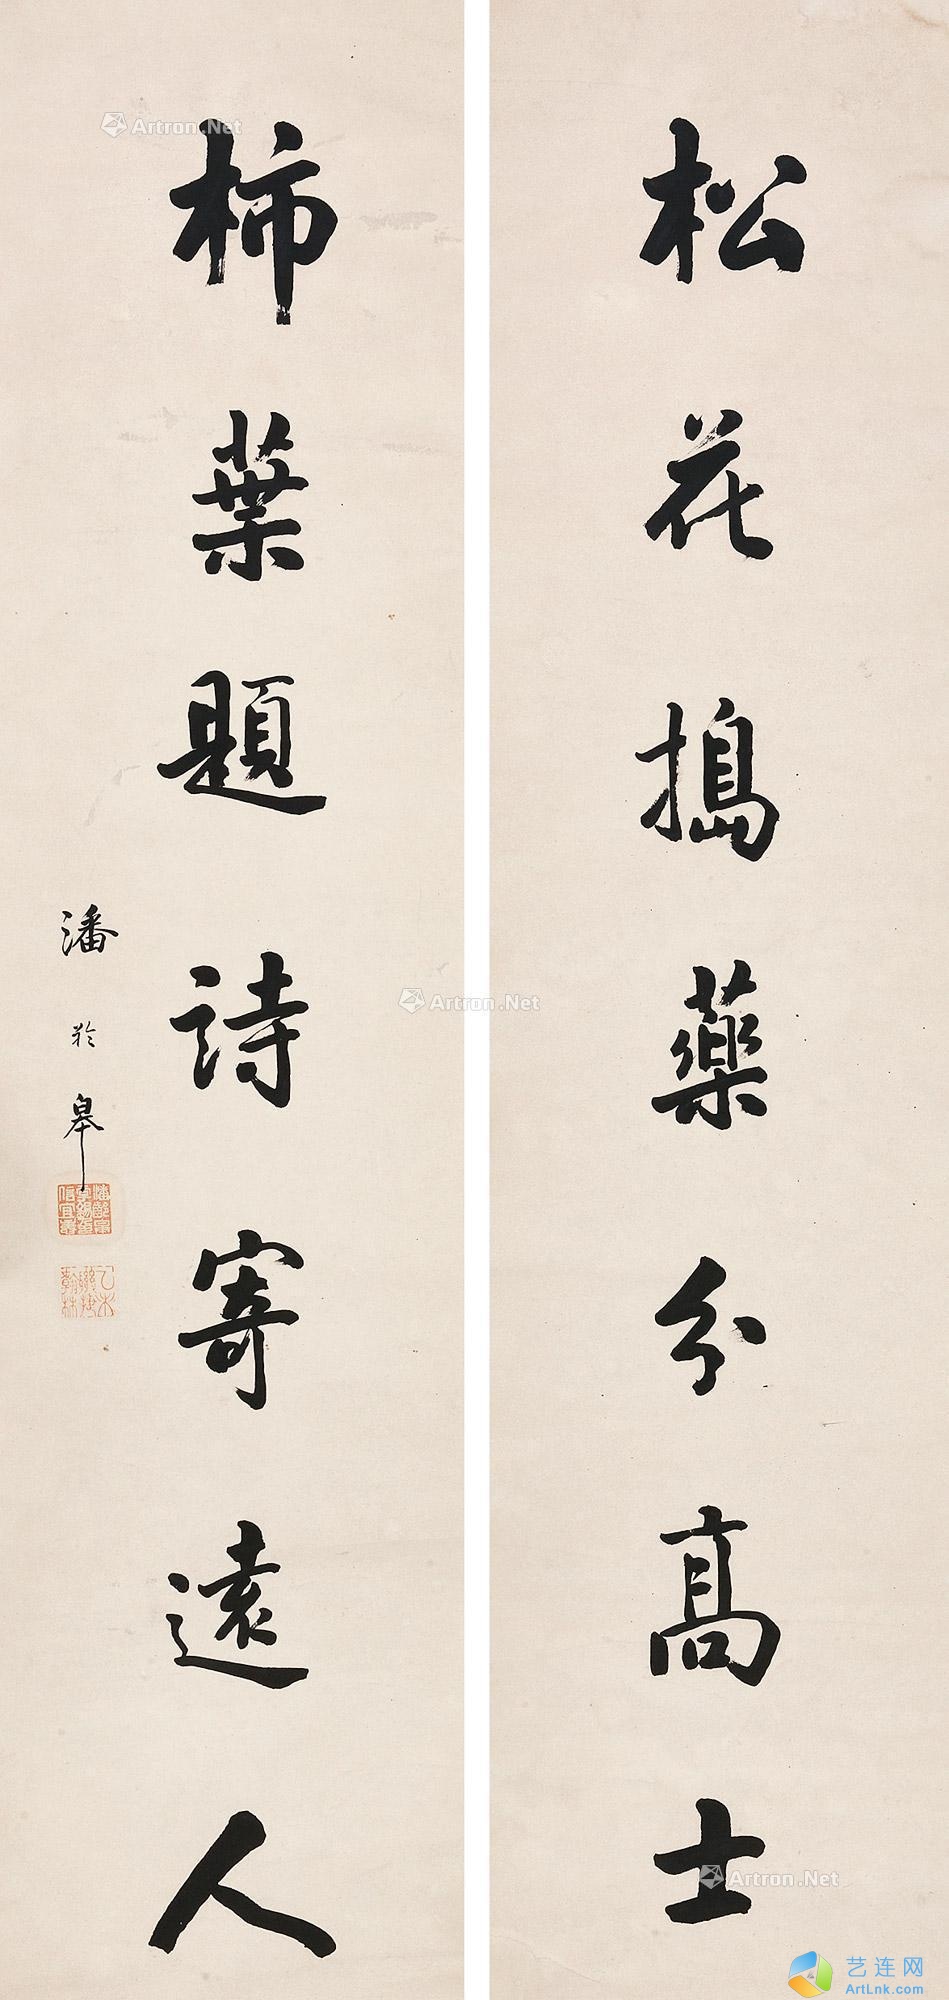 松花搗藥分高士
柿葉題詩寄遠人
潘龄皋
Artron.Net
Artron.Net
Artron.Net
艺连网
ArtLnk.com